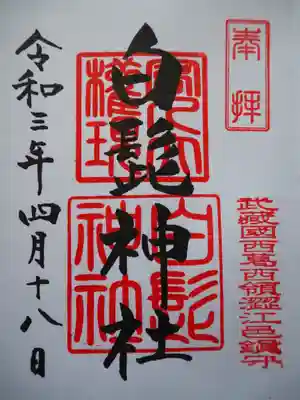 奉拝
武蔵國西葛西領澀江邑鎮守
白髭神社
白髭
神社
令和三年四月十八日